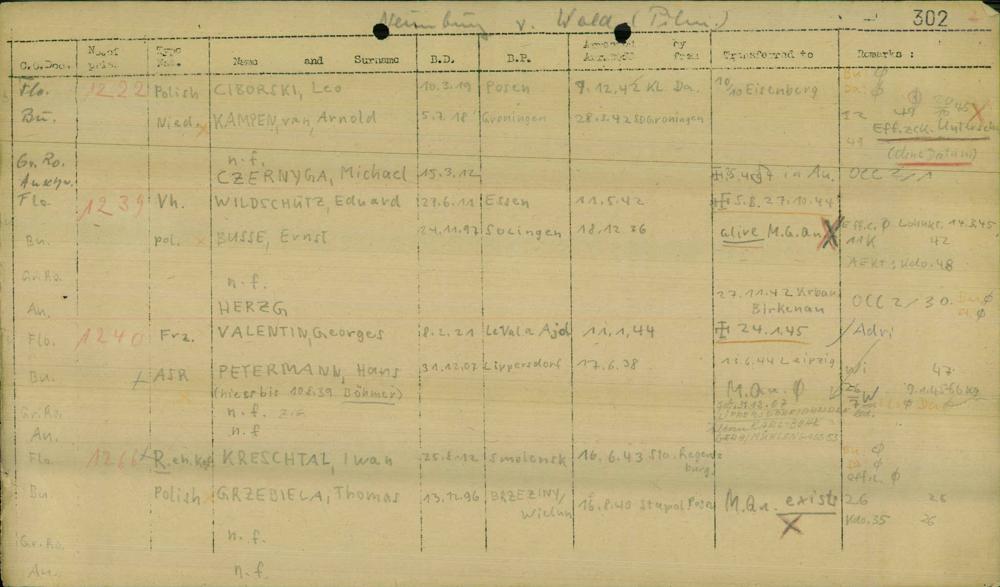 Neunburg v. Wald (Film.) 302
C.C.Doc. No. of pris. Type Nat. Name and Surname B.D. B.P. Arrested by from Transferred to Remarks :
Flo. 1222 Polish CIBORSKI, Leo 10.3.19 Posen 9.12.42 KL Da. 10/10 Eisenberg Bu: ϕ
Da: ϕ
Bu. Nied. x KAMPEN, van, Arnold 5.7.18 Groningen 28.3.42 SD Groningen 12 49 X
Eff.zck. Untersch
49
(ohne Datum)
Gr.Ro. n.f.
Auschw. CZERNYGA, Michael 15.3.12 in Au. OCC 2/1
Flo. 1239 Vh. WILDSCHÜTZ, Eduard 27.6.11 Essen 11.5.42 5.B. 27.10.44
Bu. pol. x BUSSE, Ernst 24.11.97 Solingen 18.12.36 alive M.Qu. X Eff.c. ϕ Lohnkt. 14.3.45
11K 42
AEKT: Kdo. 48
Gr.Ro. n.f.
An. HERZG 27.11.42 Krbau Birkenau OCC 2/30
Flo. 1240 Frz. VALENTIN, Georges 8.2.21 Le Val a Ajol 11.1.44 24.1.45 Adri
Bu. ASR PETERMANN, Hans 31.12.07 Lippersdorf 17.6.38 13.6.44 Leipzig Wi 47
(hiess bis 10.8.39 Böhmer) M.Qu. ϕ 26 W 9.1.45 56 kg
Gr.Ro. n.f. geb. 31.12.07
An. n.f
Flo. 1266 R. eh. Kgf. KRESCHTAL, Iwan 25.8.12 Smolensk 16.6.43 Sto. Regens burg. Bu: ϕ
Da: ϕ
effk. ϕ
Bu. Polish GRZEBIELA, Thomas 13.12.96 BRZEZINY/ Wielun 16.8.40 Stapol Posen M.Qu. exists X 26 26
Kdo. 35 26
Gr.Ro. n.f.
Au. n.f.